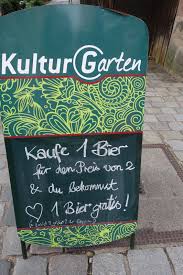 Kultur Garten
Kaufe 1 Bier
für den Preis von 2
& du bekommst
♡ 1 Bier gratis!